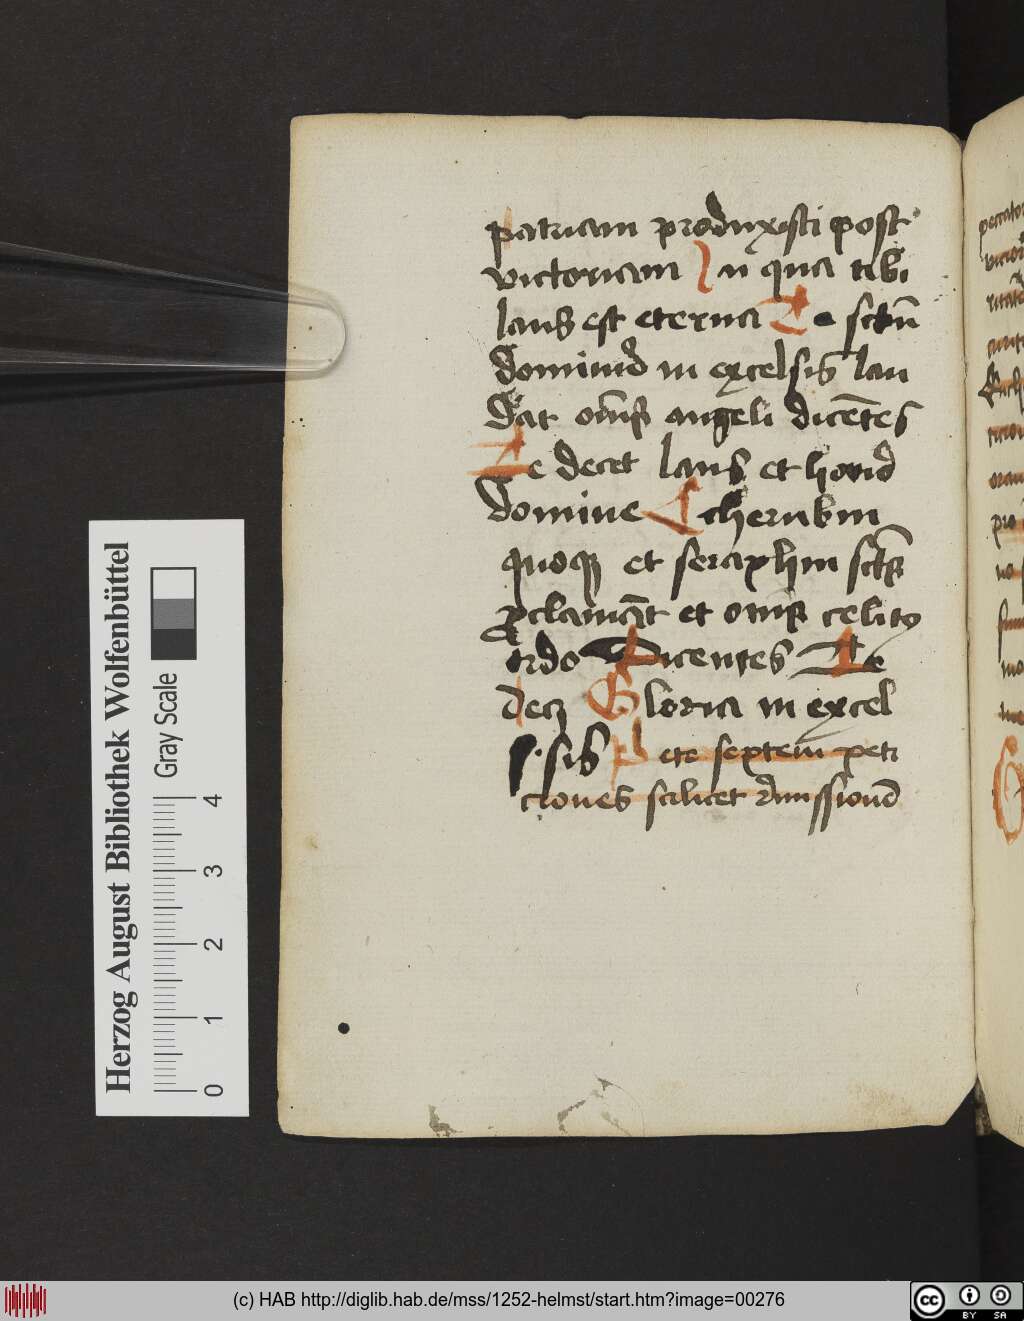 patriam produxisti post
victoriam In qua tibi
laus est eterna Te sctū
dominū in excelsis lau
dāt om̄s angeli dicētes
Te decet laus et honor
domine Cherubin
quoqꝫ et seraphim sctꝰ
ꝓclamāt et om̄is celicꝰ
ordo Dicentes Te
decꝫ Gloria in excel
sis Pete septem peti
ciones scilicet
Herzog August Bibliothek Wolfenbüttel
Gray Scale
0 1 2 3 4
(c) HAB http://diglib.hab.de/mss/1252-helmst/start.htm?image=00276
cc BY SA